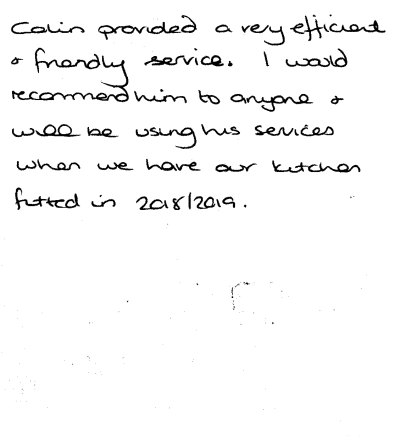 Colin provided a very efficient
& friendly service. I would
recommend him to anyone &
will be using his services
when we have our kitchen
fitted in 2018/2019.